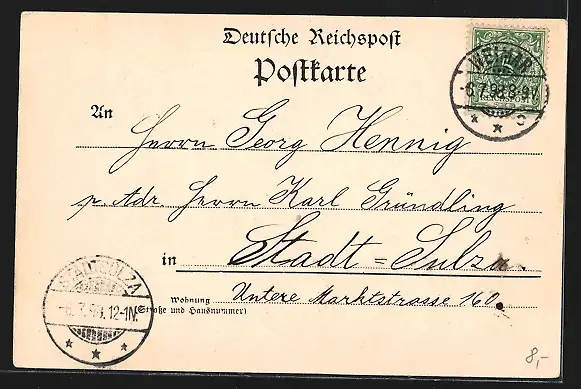 Deutsche Reichspost
Postkarte
WEIMAR
-6.7.98.8-9V.
* * c
An
Herrn Georg Hennig
p. Adr. Herrn Karl Gründling
in Stadt=Sulza.
STADTSULZA
-6.7.98.12-1N.
* * *
Wohnung
(Straße und Hausnummer)
Untere Marktstrasse 160.
8,-